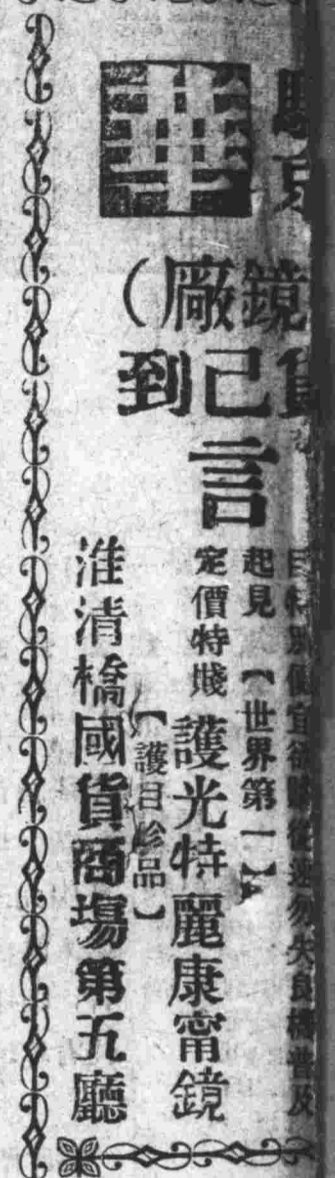 華
鏡廠（
到己
言
特別便宜欲購從速勿失良機普及
起見【世界第一】
定價特賤 護光特麗康甯鏡
【護目珍品】
淮清橋國貨商場第五廳